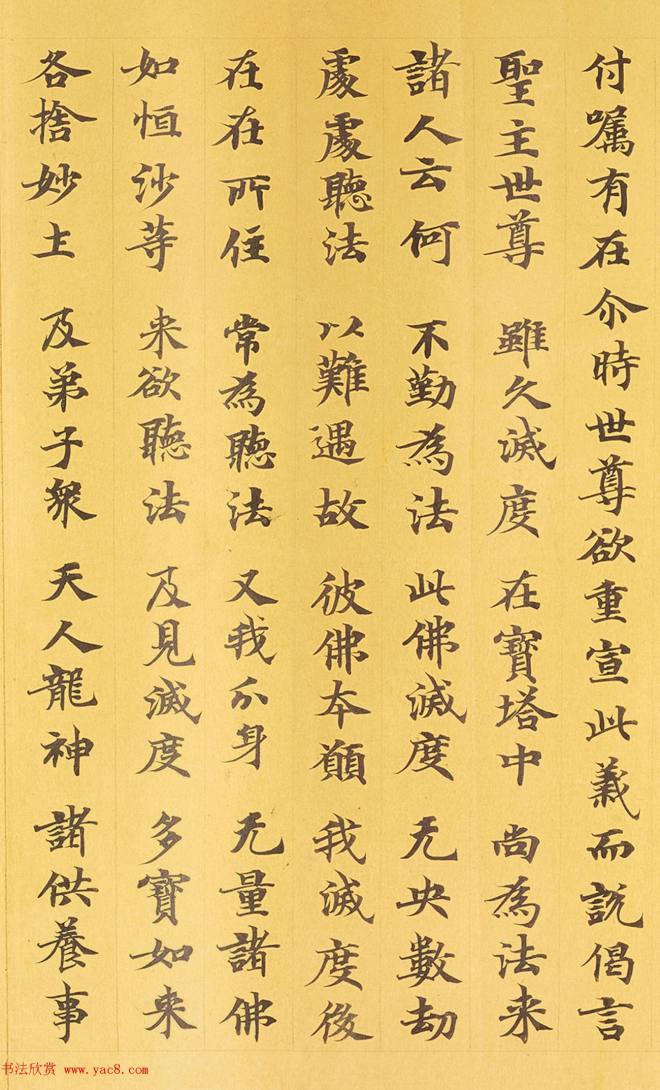 付嘱有在尒時世尊欲重宣此義而説偈言
聖主世尊 雖久滅度 在寶塔中 尚為法来
諸人云何 不勤為法 此佛滅度 无央數劫
處處聽法 以難遇故 彼佛本願 我滅度後
在在所往 常為聽法 又我分身 无量諸佛
如恒沙等 来欲聽法 及見滅度 多寶如来
各捨妙土 及弟子眾 天人龍神 諸供養事
书法欣赏 www.yac8.com